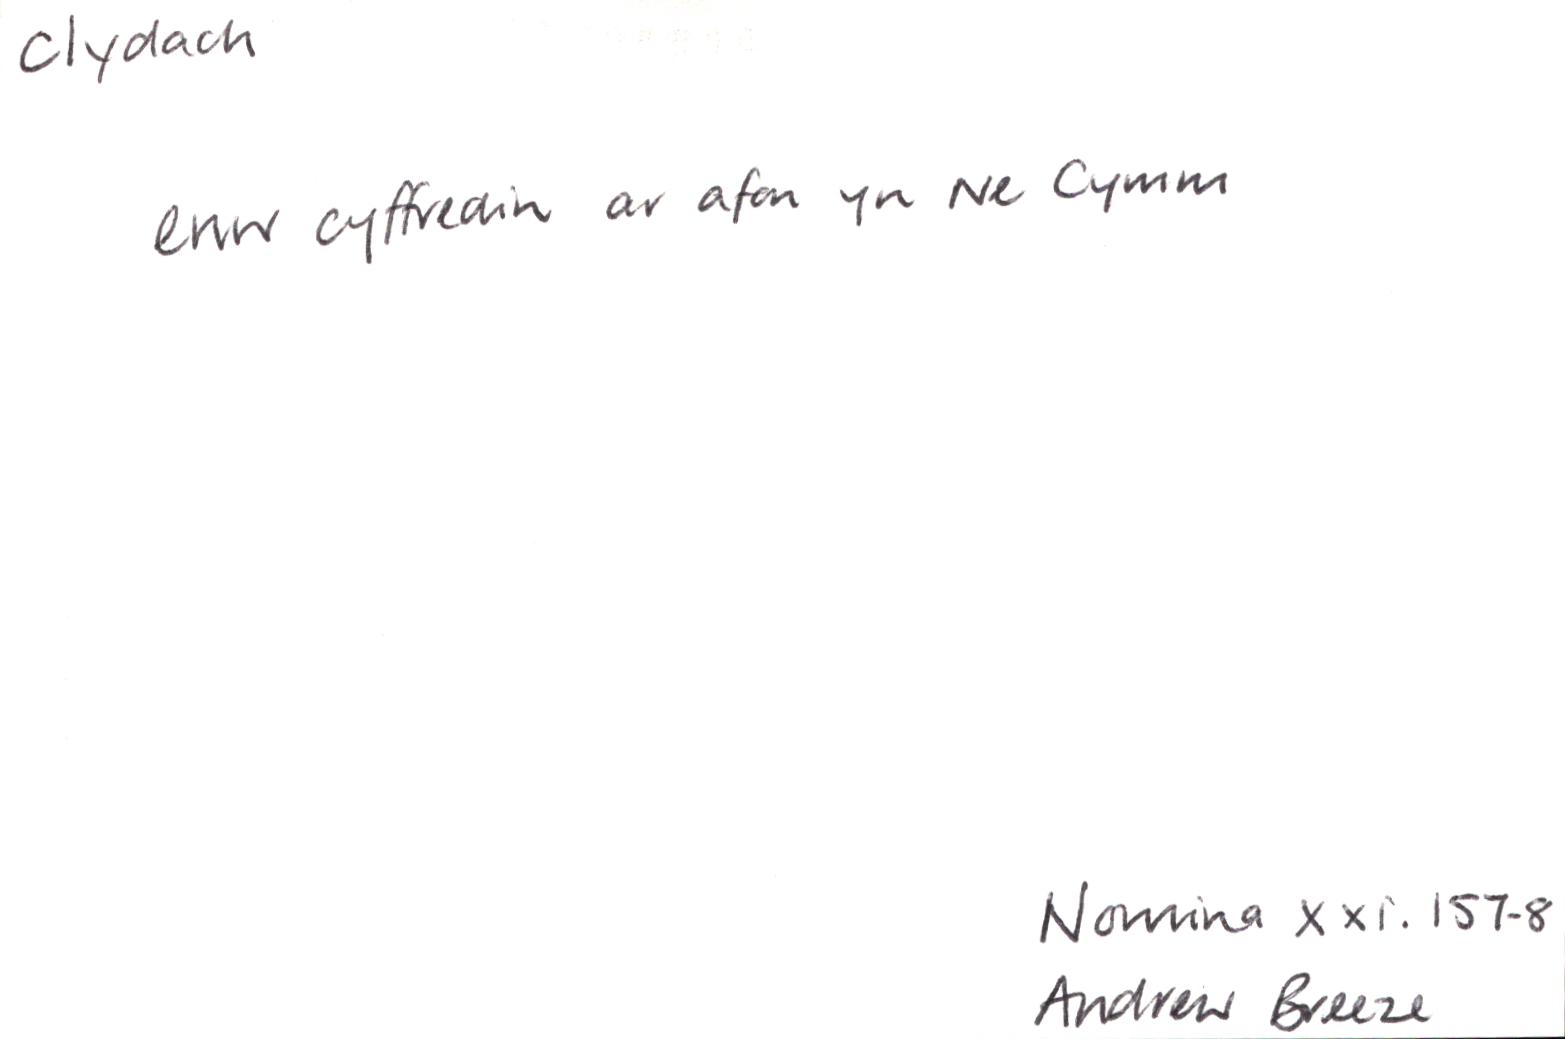 Clydach
enw cyffredin ar afon yn Ne Cymru
Nomina xxi. 157-8
Andrew Breeze